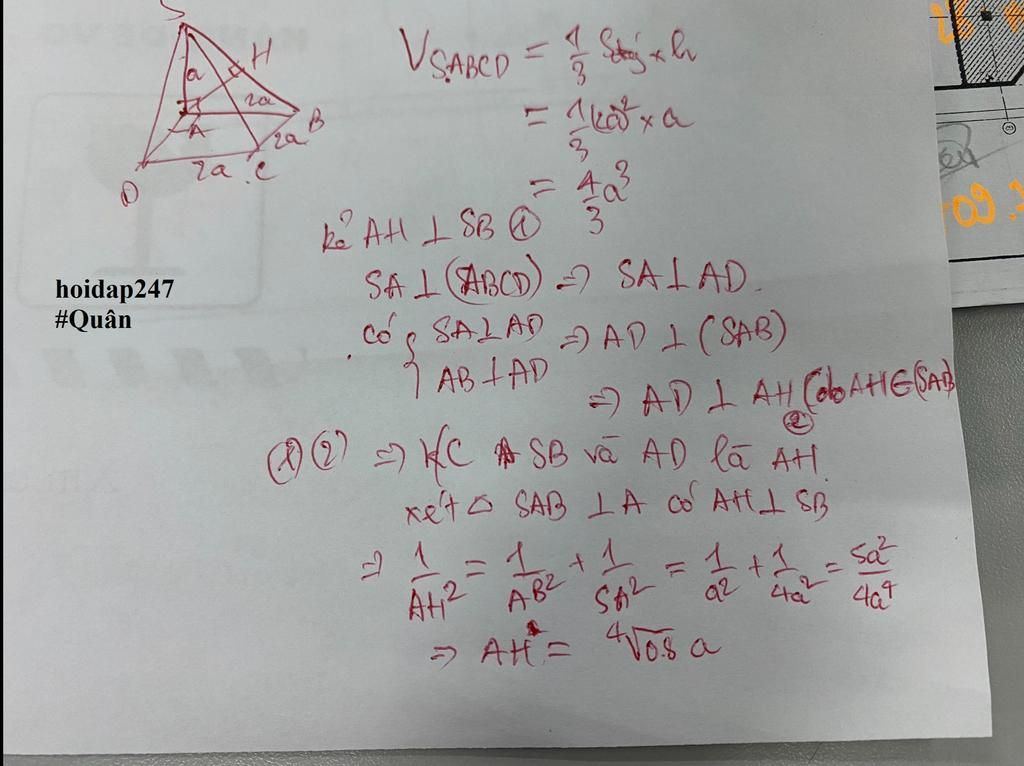 S
a
H
2a
A
B
2a
D
2a
C
V S.ABCD = 1/3 Sđáy × h
= 1/3 4a² × a
= 4/3 a³
kẻ AH ⊥ SB ①
SA ⊥ (ABCD) => SA ⊥ AD.
có { SA ⊥ AD => AD ⊥ (SAB)
AB ⊥ AD
=> AD ⊥ AH (do AH ∈ (SAB)
②
(1) (2) => K/C SB và AD là AH
xét △ SAB ⊥ A có AH ⊥ SB
=> 1/AH² = 1/AB² + 1/SA² = 1/a² + 1/4a² = 5a²/4a⁴
=> AH = ⁴√0.8 a
hoidap247
#Quân